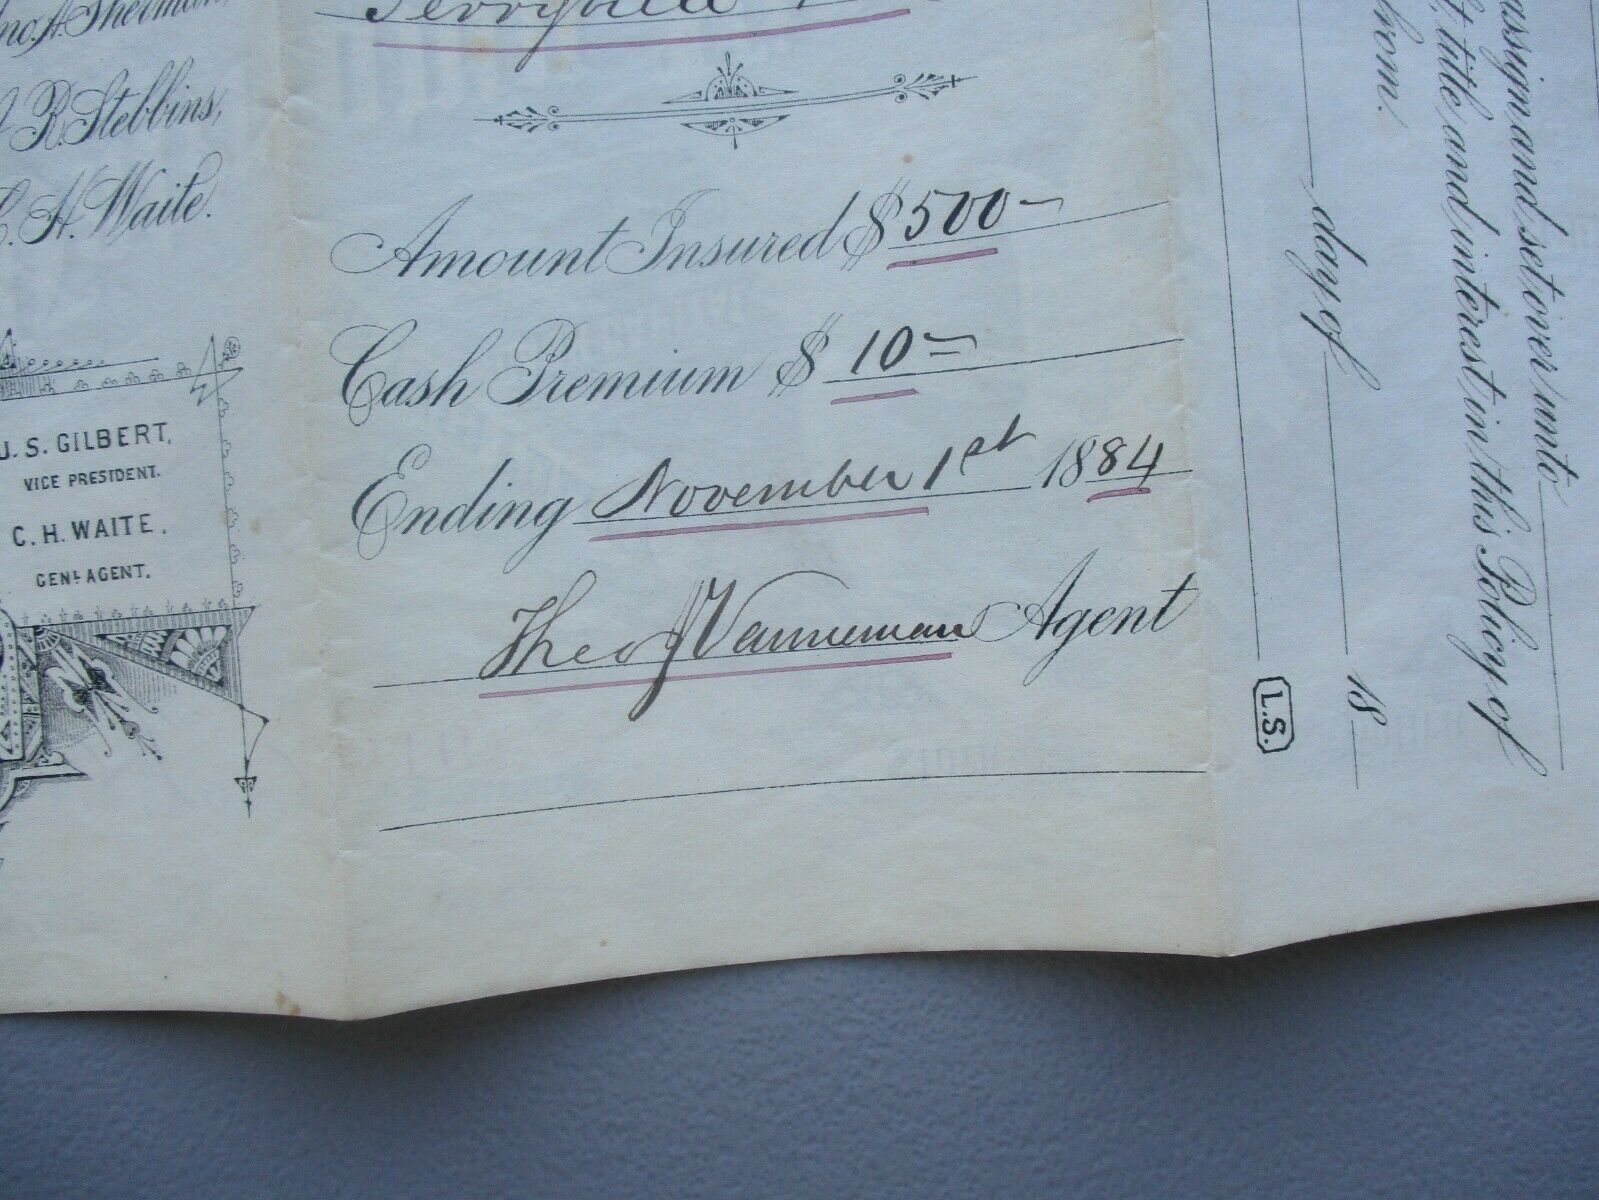 A. Sherman,
R. Stebbins,
C. H. Waite.
J. S. GILBERT,
VICE PRESIDENT.
C. H. WAITE.
GENL AGENT.
Perryville
Amount Insured $ 500-
Cash Premium $ 10=
Ending November 1st 1884
Theo J Vanneman Agent
assign and set over unto
title and interest in this Policy of
day of 18
L.S.